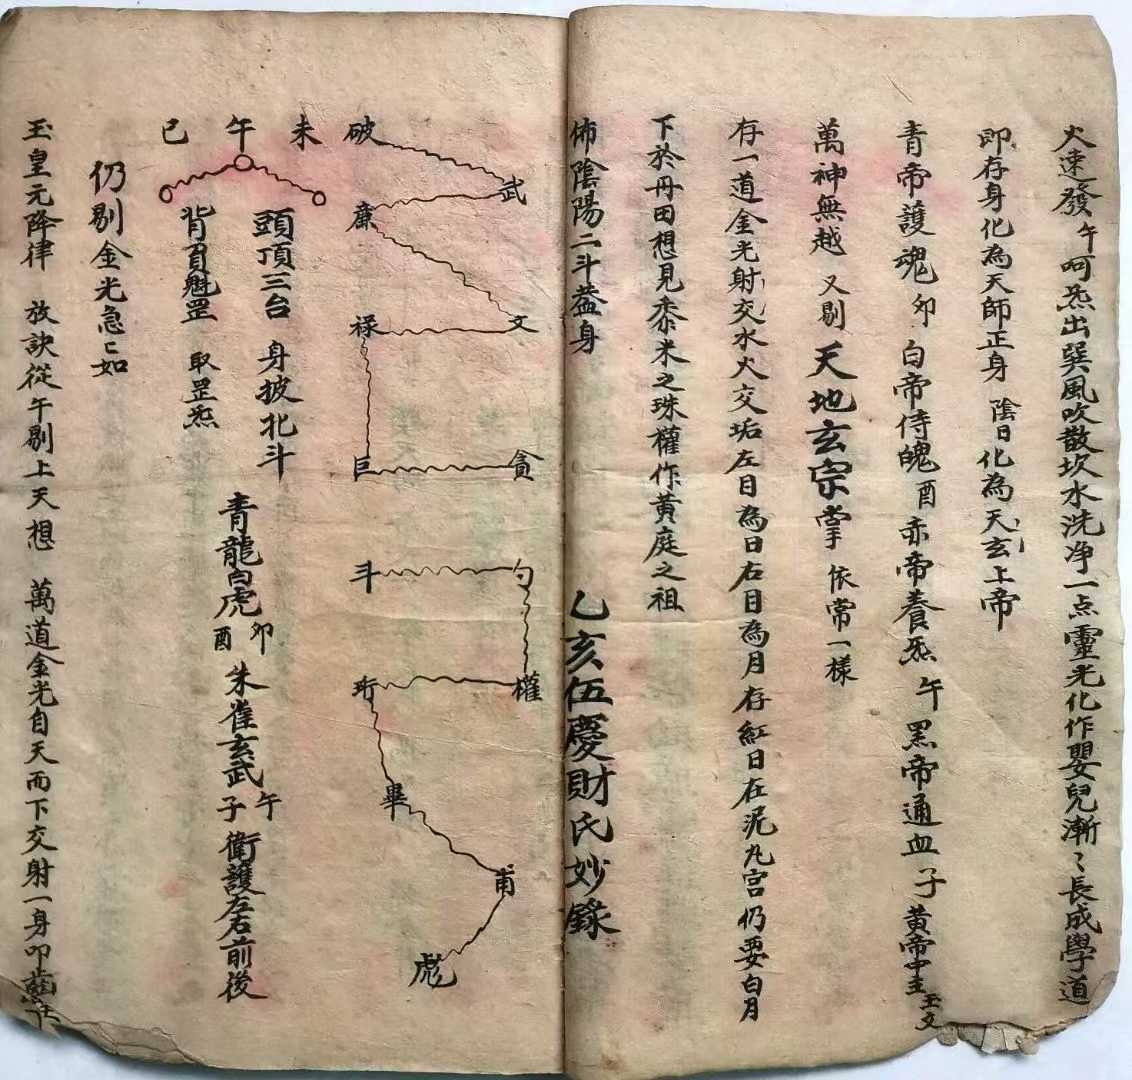 火速發午呵炁出巽風吹散坎水洗净一点靈光化作嬰兒漸〻長成學道
即存身化為天師正身 陰日化為天玄上帝
青帝護魂卯 白帝侍魄酉 赤帝養炁 午 黑帝通血 子 黄帝中主 玉文
萬神無越 又剔 天地玄宗掌 依常一様
存一道金光射交水火交垢左目為日右目為月存紅日在泥丸宫仍要白月
下於丹田想見黍米之珠權作黄庭之祖
佈陰陽二斗葢身
乙亥伍慶財氏妙錄
破 武
廉
禄 文
巨 貪
斗 勺
珩 權
畢
甫
彪
未 午 巳
頭頂三台 身披北斗
青龍卯白虎酉 朱雀午玄武子 衛護左右前後
背負魁罡 取罡炁
仍剔金光急〻如
玉皇元降律 放訣從午剔上天想 萬道金光自天而下交射一身叩齒